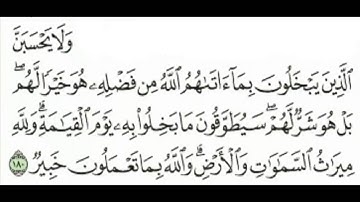 وَلَا يَحْسَبَنَّ
ٱلَّذِينَ يَبْخَلُونَ بِمَآ ءَاتَىٰهُمُ ٱللَّهُ مِن فَضْلِهِۦ هُوَ خَيْرًا لَّهُم ۖ
بَلْ هُوَ شَرٌّ لَّهُمْ ۖ سَيُطَوَّقُونَ مَا بَخِلُوا۟ بِهِۦ يَوْمَ ٱلْقِيَٰمَةِ ۗ وَلِلَّهِ
مِيرَٰثُ ٱلسَّمَٰوَٰتِ وَٱلْأَرْضِ ۗ وَٱللَّهُ بِمَا تَعْمَلُونَ خَبِيرٌ ١٨٠